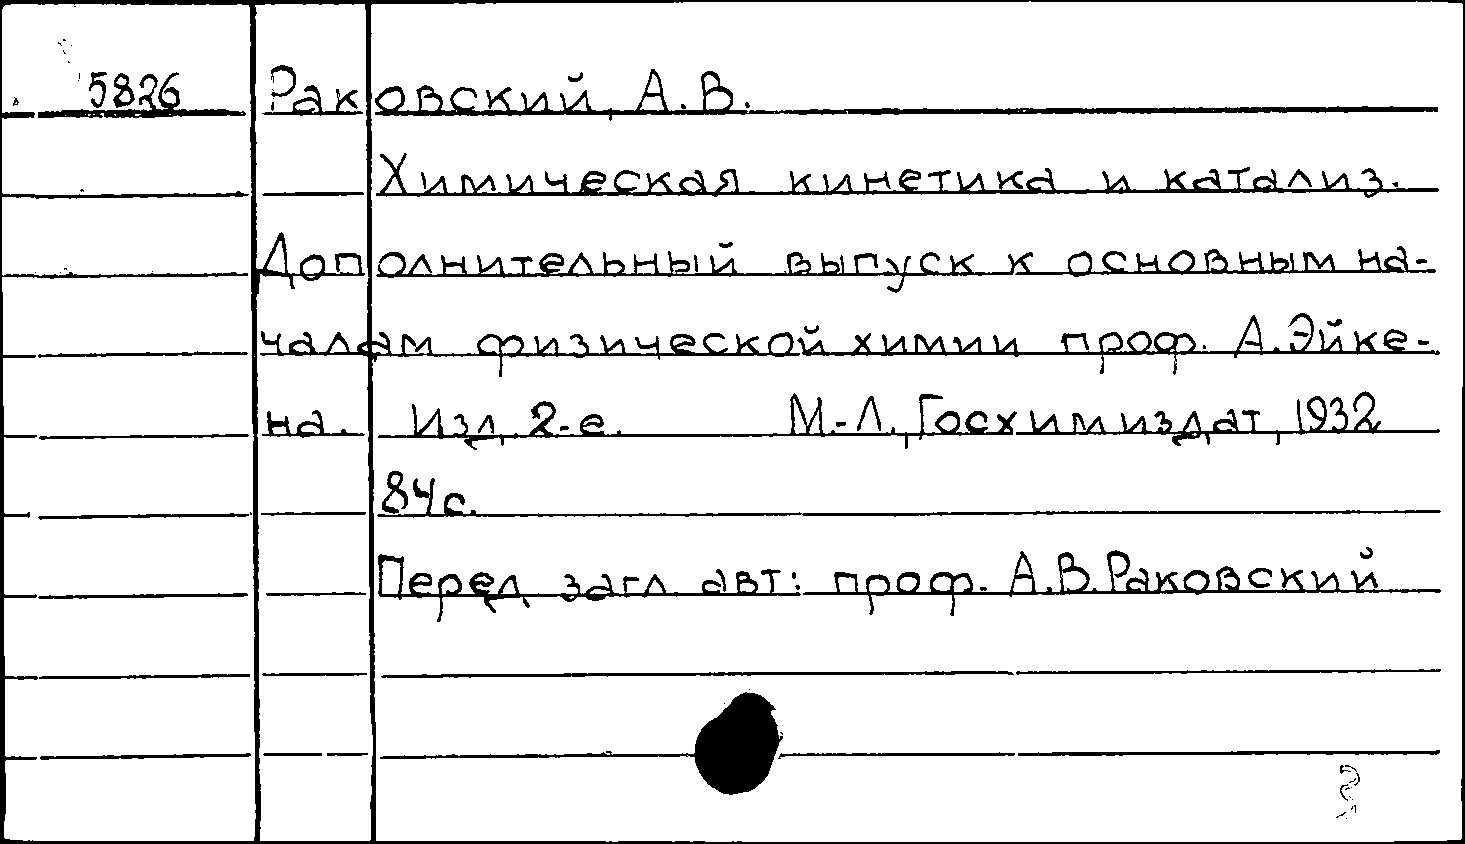 5826 Раковский, А.В.
Химическая кинетика и катализ.
Дополнительный выпуск к основным на-
чалам физической химии проф. А.Эйке-
на. Изд. 2-е. М.-Л., Госхимиздат, 1932
84с.
Перед загл. авт: проф. А.В.Раковский